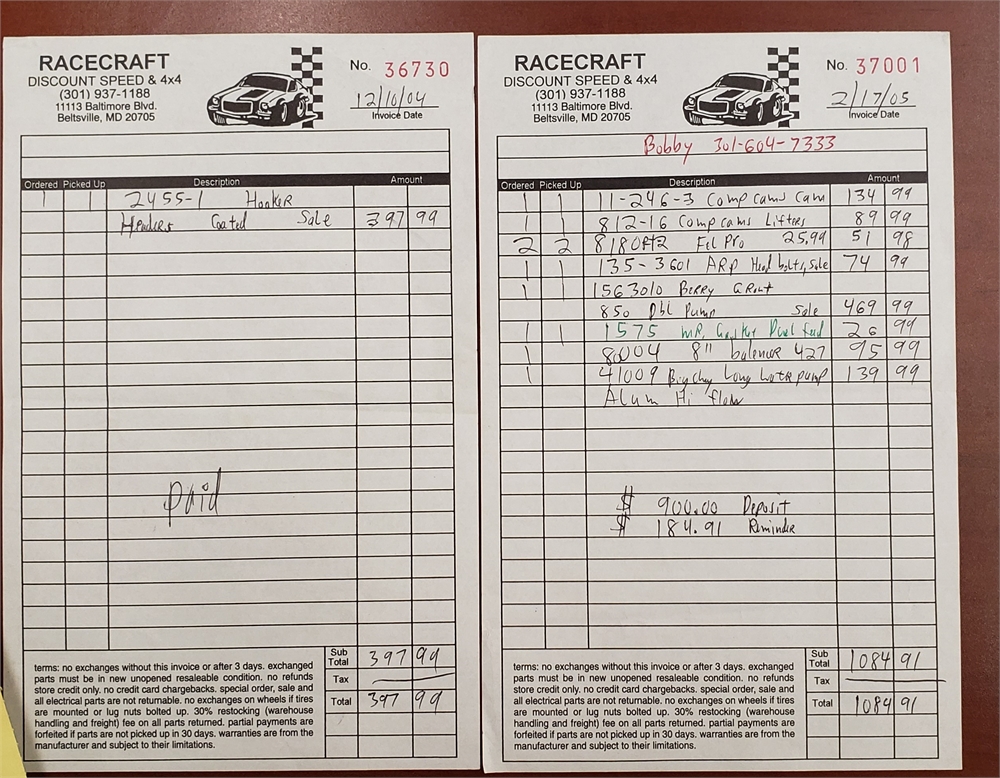 RACECRAFT
DISCOUNT SPEED & 4x4
(301) 937-1188
11113 Baltimore Blvd.
Beltsville, MD 20705
No. 36730
12/10/04
Invoice Date
Ordered Picked Up Description Amount
1 1 2455-1 Hooker
Headers Coated Sale 397 99
paid
terms: no exchanges without this invoice or after 3 days. exchanged
parts must be in new unopened resaleable condition. no refunds
store credit only. no credit card chargebacks. special order, sale and
all electrical parts are not returnable. no exchanges on wheels if tires
are mounted or lug nuts bolted up. 30% restocking (warehouse
handling and freight) fee on all parts returned. partial payments are
forfeited if parts are not picked up in 30 days. warranties are from the
manufacturer and subject to their limitations.
Sub Total 397 99
Tax
Total 397 99
RACECRAFT
DISCOUNT SPEED & 4x4
(301) 937-1188
11113 Baltimore Blvd.
Beltsville, MD 20705
No. 37001
2/17/05
Invoice Date
Bobby 301-604-7333
Ordered Picked Up Description Amount
1 1 11-246-3 Comp cams Cam 134 99
1 1 812-16 Comp cams Lifters 89 99
2 2 8180PT2 Fel Pro 25.99 51 98
1 1 135-3601 ARP Head bolts, Sale 74 99
1 1 1563010 Berry Grant
850 Dbl Pump Sale 469 99
1 1 1575 MR, Gasket Duel feed 26 99
1 80004 8" balencer 427 95 99
1 41009 Big Chy Long water pump 139 99
Alum Hi flow
$ 900.00 Deposit
$ 184.91 Reminder
terms: no exchanges without this invoice or after 3 days. exchanged
parts must be in new unopened resaleable condition. no refunds
store credit only. no credit card chargebacks. special order, sale and
all electrical parts are not returnable. no exchanges on wheels if tires
are mounted or lug nuts bolted up. 30% restocking (warehouse
handling and freight) fee on all parts returned. partial payments are
forfeited if parts are not picked up in 30 days. warranties are from the
manufacturer and subject to their limitations.
Sub Total 1084 91
Tax
Total 1084 91